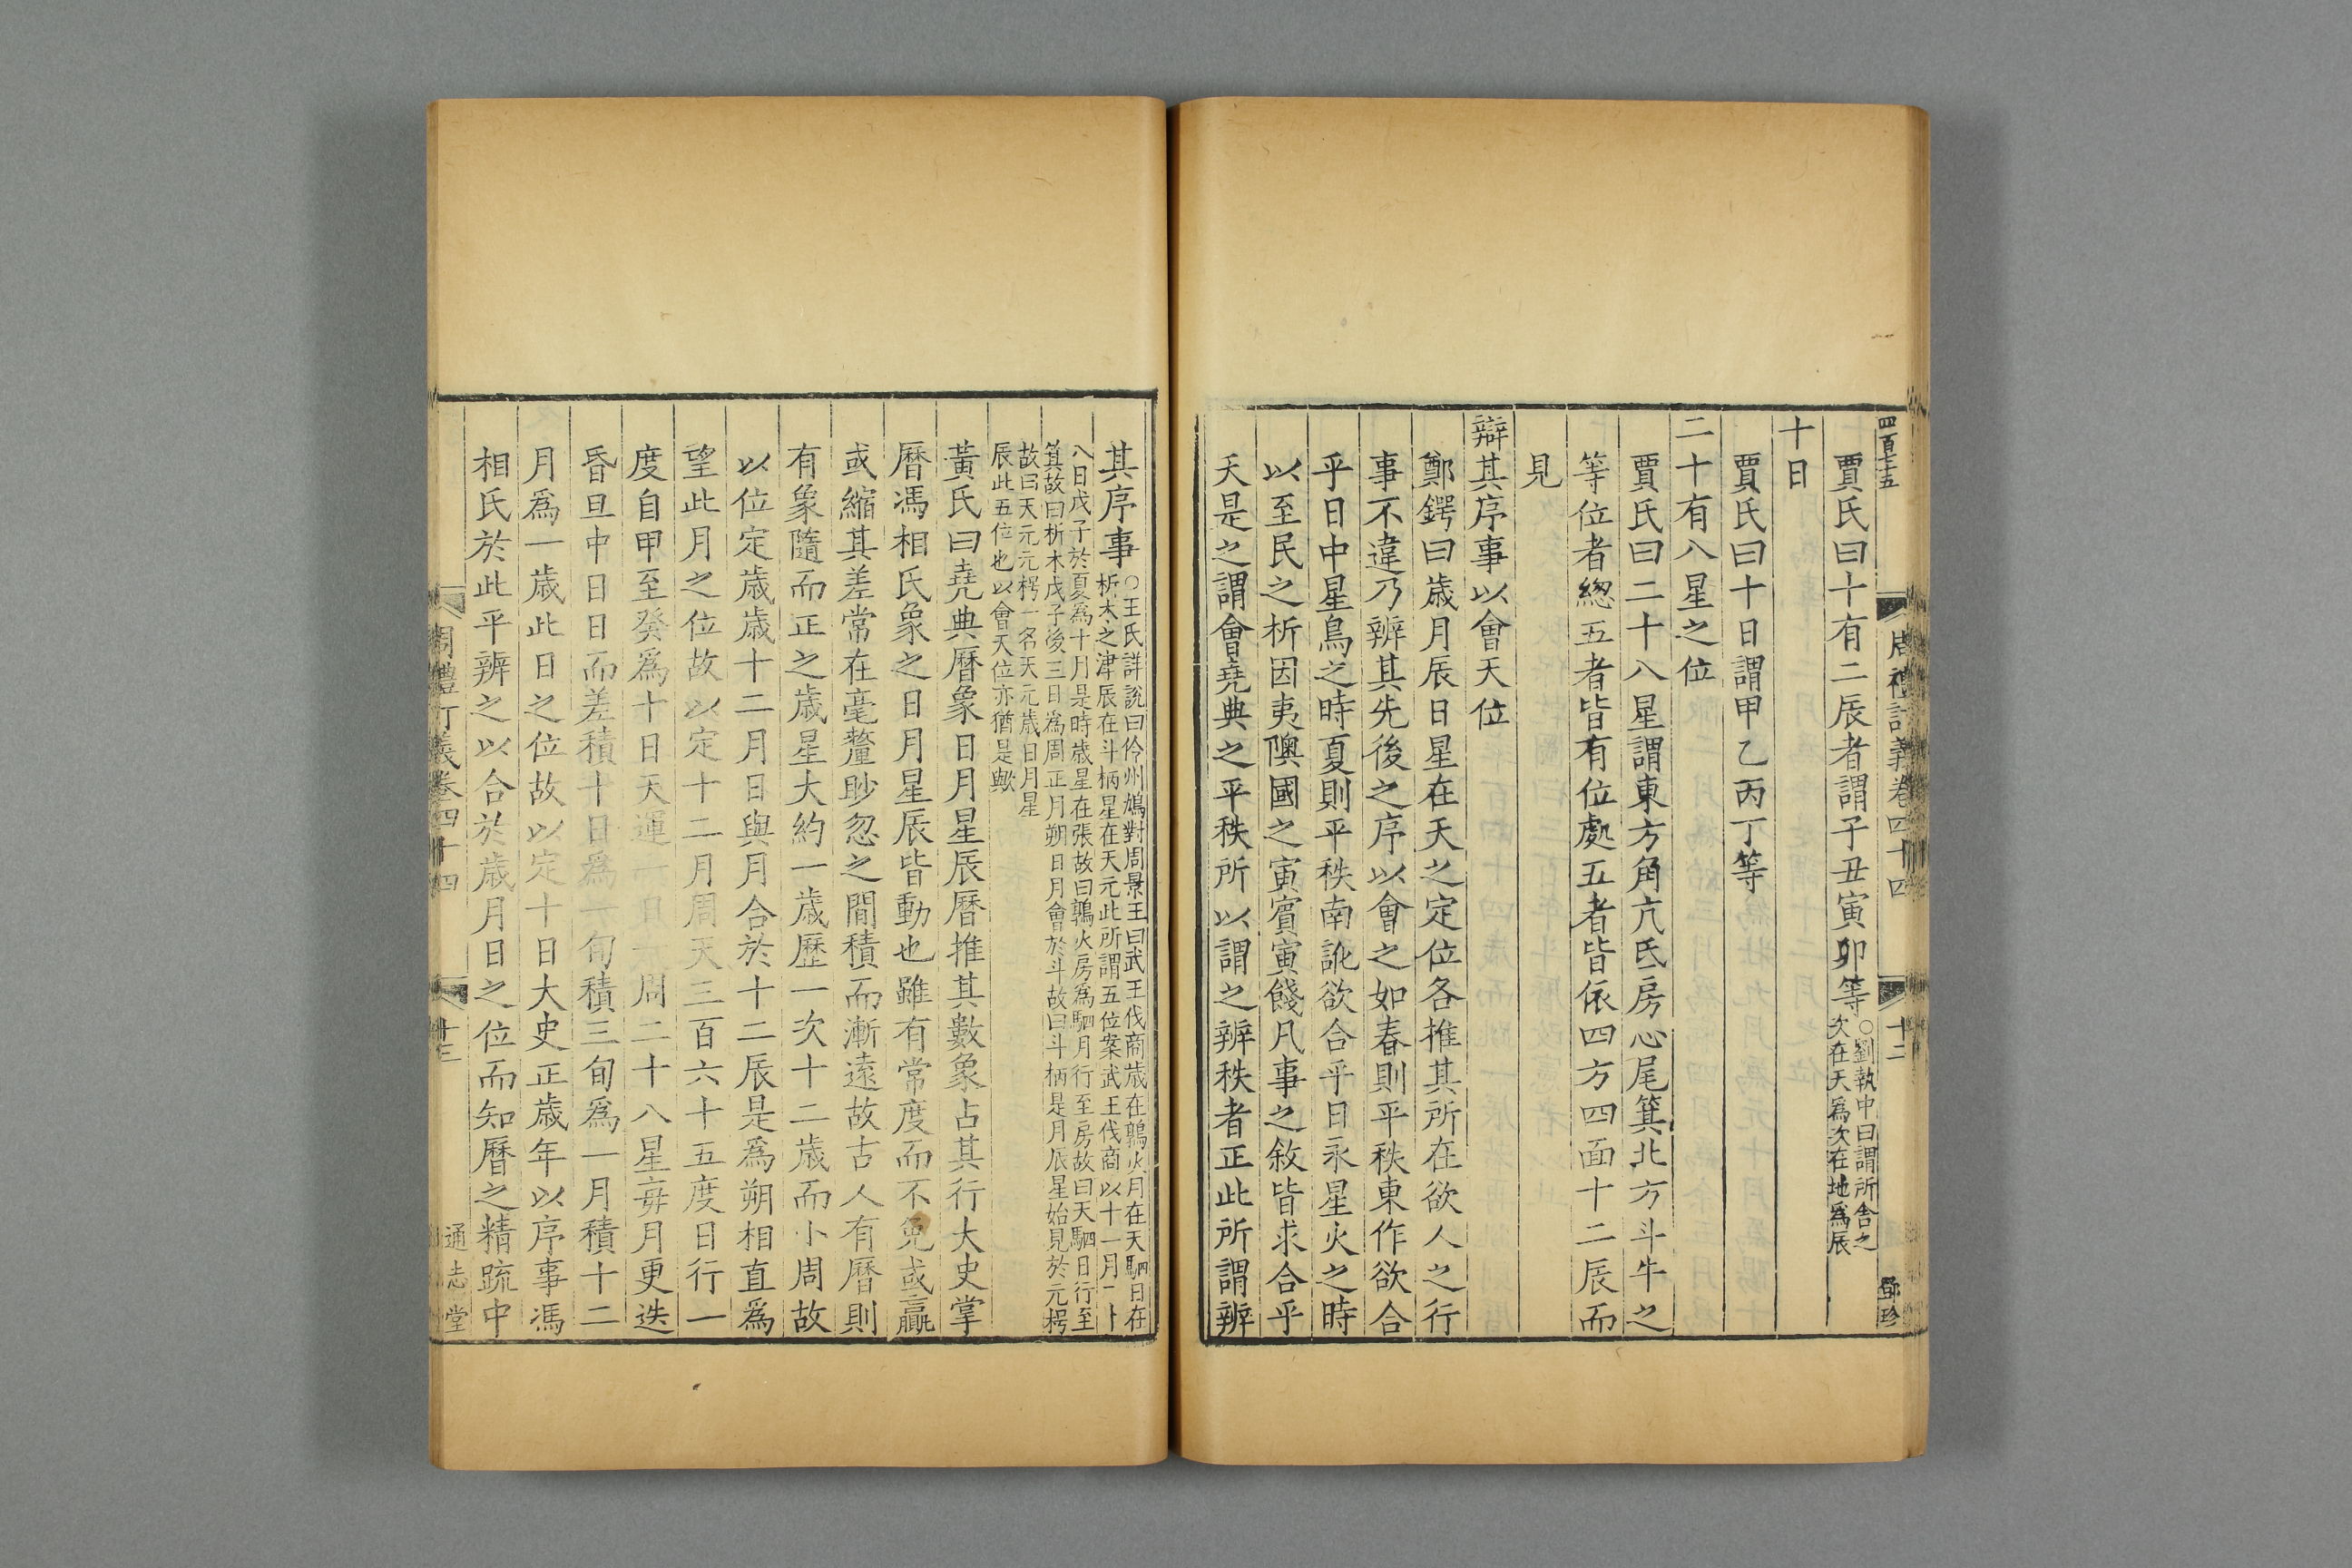 四百七十五
周禮訂義卷四十四
十二
鄧珍
賈氏曰十有二辰者謂子丑寅卯等
○劉執中曰謂所舎之
次在天爲次在地爲辰
十日
賈氏曰十日謂甲乙丙丁等
二十有八星之位
賈氏曰二十八星謂東方角亢氐房心尾箕北方斗牛之
等位者總五者皆有位處五者皆依四方四面十二辰而
見
辯其序事以會天位
鄭鍔曰歲月辰日星在天之定位各推其所在欲人之行
事不違乃辨其先後之序以會之如春則平秩東作欲合
乎日中星鳥之時夏則平秩南訛欲合乎日永星火之時
以至民之析因夷隩國之寅賓寅餞凡事之敘皆求合乎
天是之謂會堯典之平秩所以謂之辨秩者正此所謂辨
其序事
○王氏詳說曰伶州鳩對周景王曰武王伐商歲在鶉火月在天駟日在
析木之津辰在斗柄星在天元此所謂五位案武王伐商以十一月二十
八日戊子於夏爲十月是時歲星在張故曰鶉火房爲駟月行至房故曰天駟日行至
箕故曰析木戊子後三日為周正月朔日月會於斗故曰斗柄是月辰星始見於元枵
故曰天元元枵一名天元歲日月星
辰此五位也以會天位亦猶是歟
黃氏曰堯典曆象日月星辰曆推其數象占其行大史掌
曆馮相氏象之日月星辰皆動也雖有常度而不免或贏
或縮其差常在毫釐眇忽之間積而漸遠故古人有曆則
有象隨而正之歲星大約一歲歷一次十二歲而小周故
以位定歲歲十二月日與月合於十二辰是爲朔相直爲
望此月之位故以定十二月周天三百六十五度日行一
度自甲至癸爲十日天運一日一周二十八星每月更迭
昏旦中日日而差積十日爲一旬積三旬爲一月積十二
月爲一歲此日之位故以定十日大史正歲年以序事馮
相氏於此平辨之以合於歲月日之位而知曆之精疏中
周禮訂義卷四十四
十三
通志堂